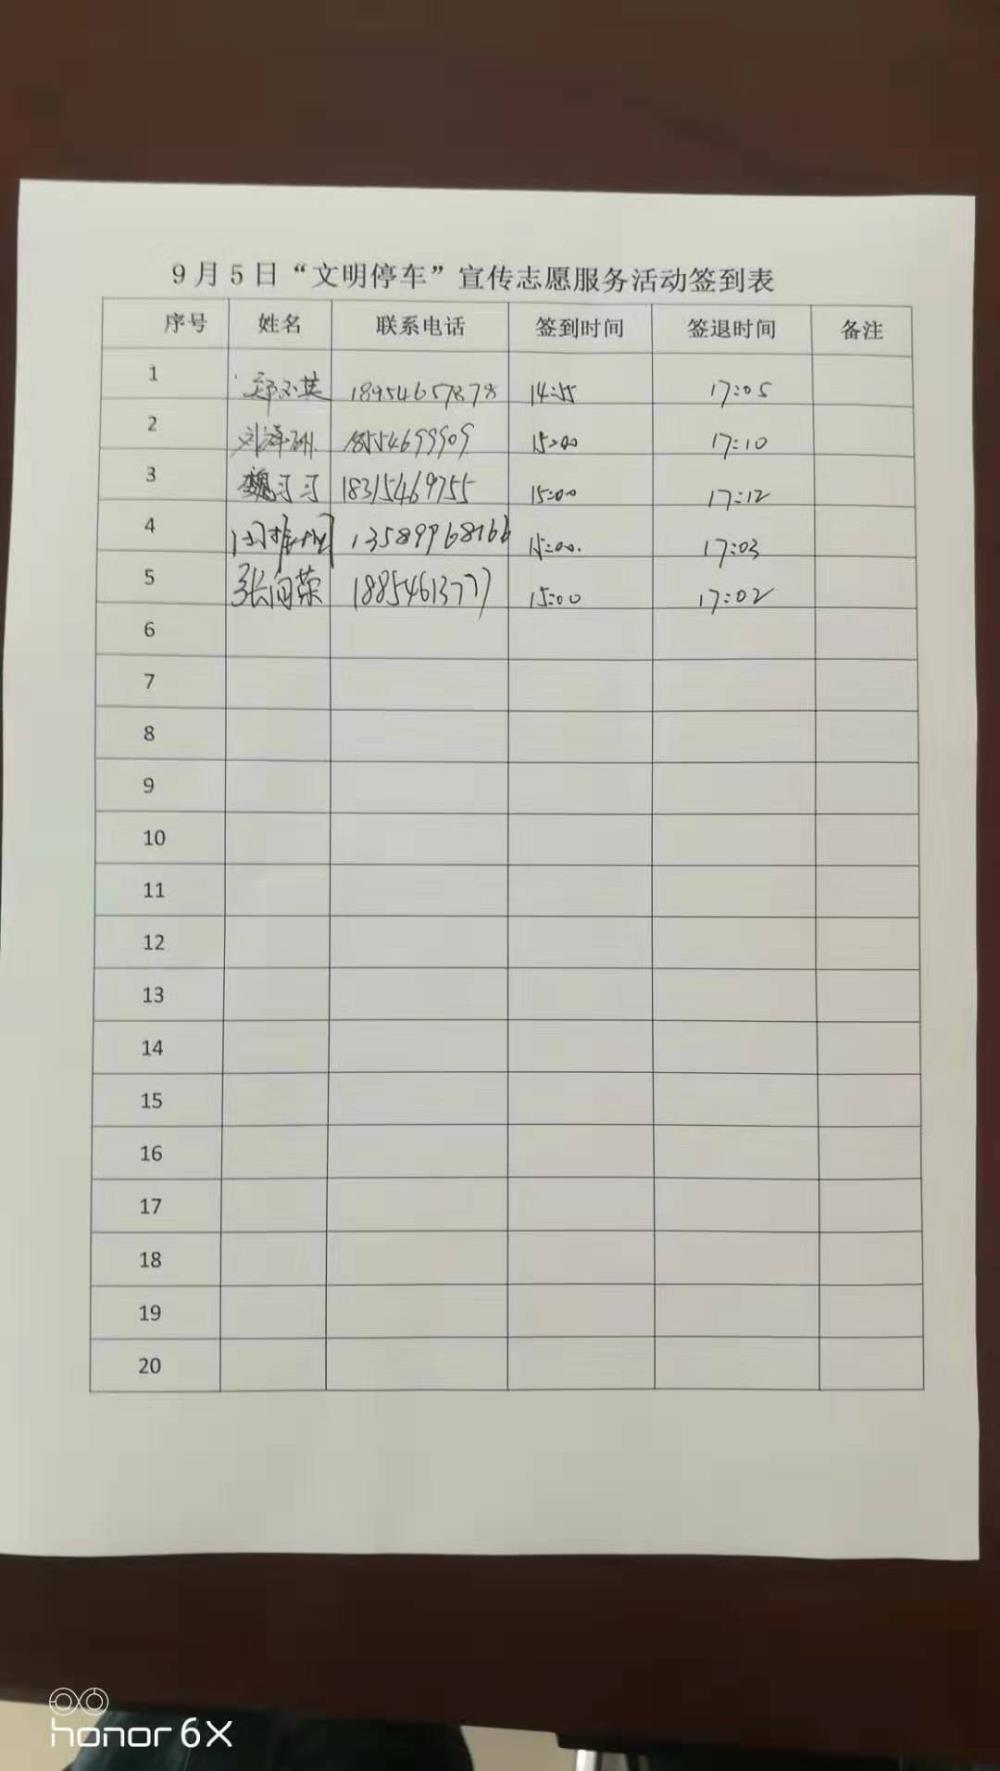 9月5日“文明停车”宣传志愿服务活动签到表
序号 姓名 联系电话 签到时间 签退时间 备注
1 18954657878 14:55 17:05
2 刘泽洲 18554699909 15:00 17:10
3 魏习习 18315469755 15:00 17:12
4 13589968166 15:00. 17:03
5 张向荣 18854613777 15:00 17:02
6
7
8
9
10
11
12
13
14
15
16
17
18
19
20
honor 6X